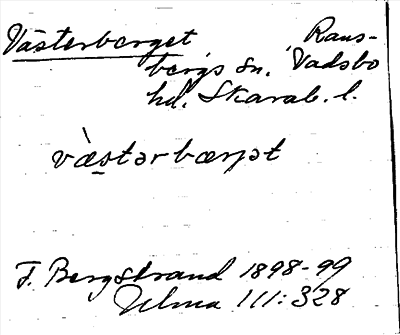 Västerberget Rans-
bergs sn. Vadsbo
hd. Skarab. l.
vȁstərbærjət
F. Bergstrand 1898-99
Ulma 111:328